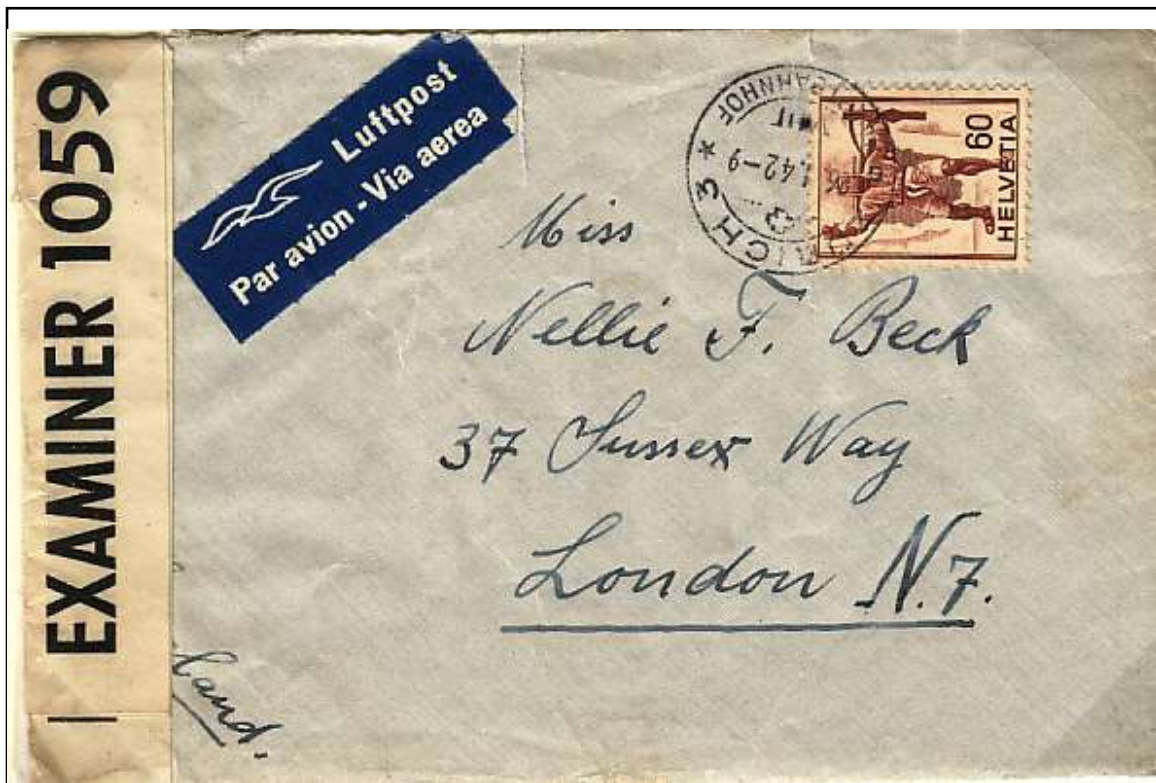 EXAMINER 1059
Luftpost
Par avion - Via aerea
60
HELVETIA
3 * BAHNHOF
42-9
Miss
Nellie F. Beck
37 Sussex Way
London N.7.
land.